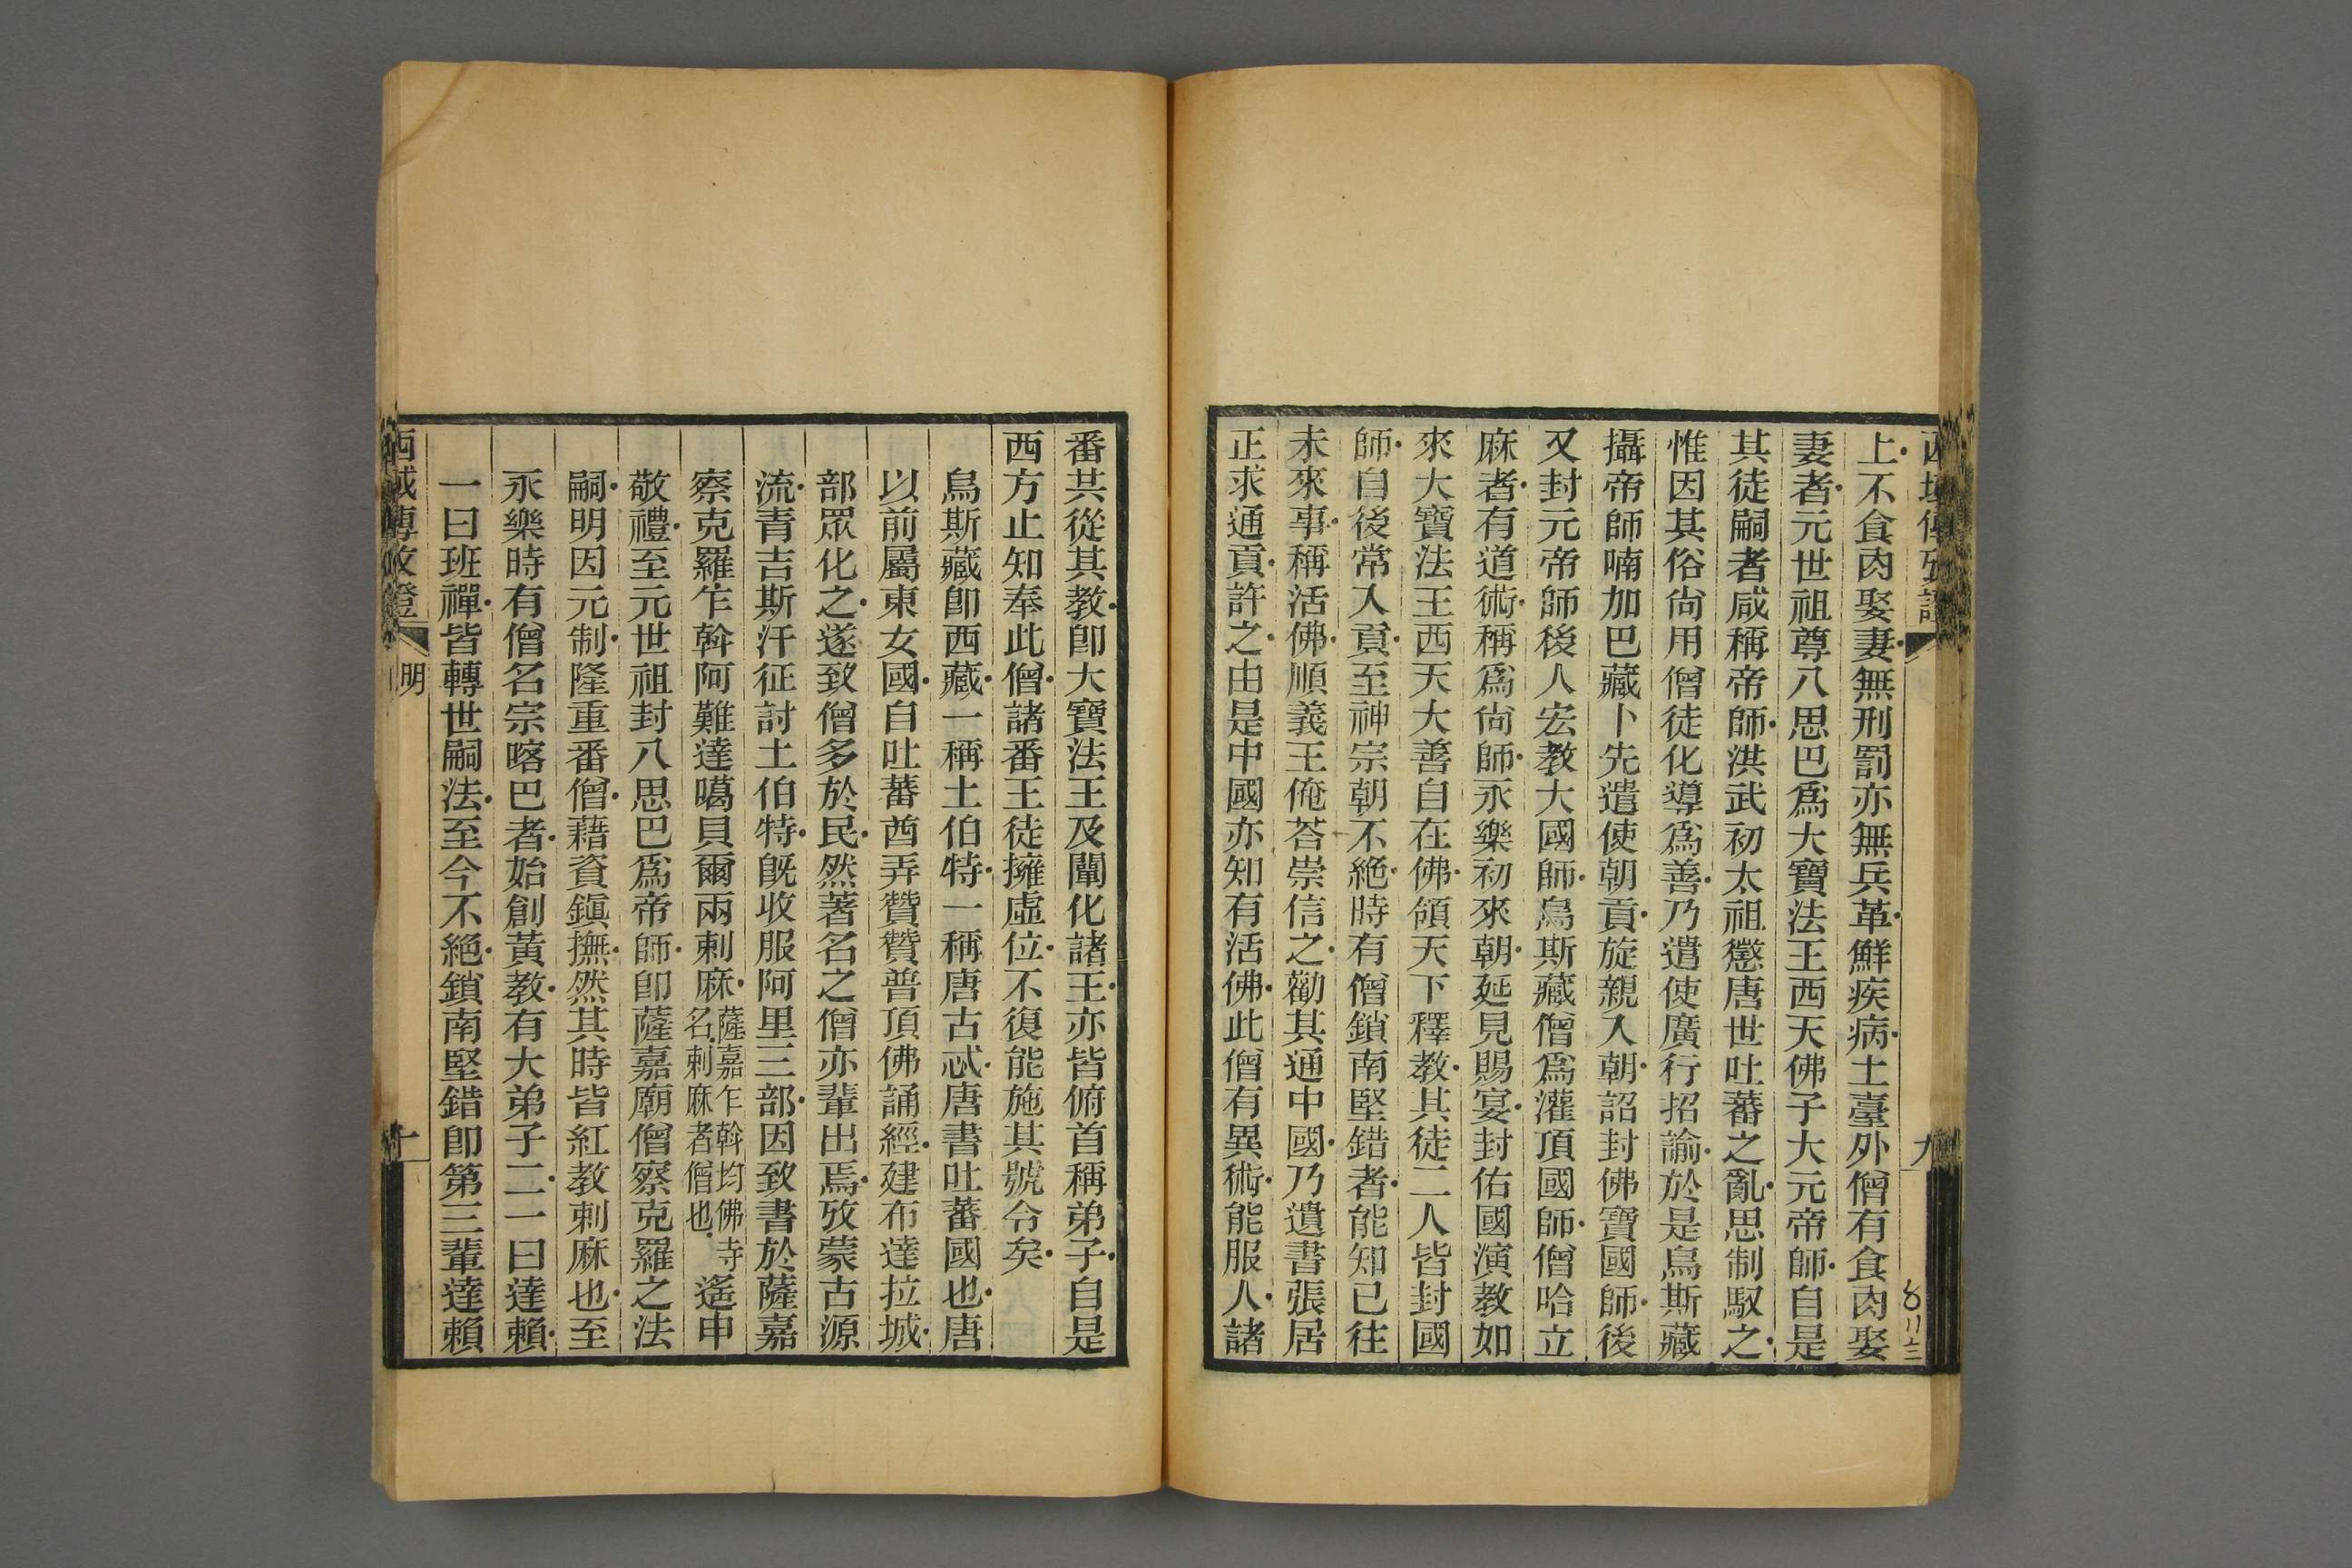 西域傳攷證
九
上不食肉娶妻無刑罰亦無兵革鮮疾病土臺外僧有食肉娶
妻者元世祖尊八思巴爲大寶法王西天佛子大元帝師自是
其徒嗣者咸稱帝師洪武初太祖懲唐世吐蕃之亂思制馭之
惟因其俗尙用僧徒化導爲善乃遣使廣行招諭於是烏斯藏
攝帝師喃加巴藏卜先遣使朝貢旋親入朝詔封佛寶國師後
又封元帝師後人宏教大國師烏斯藏僧爲灌頂國師僧哈立
麻者有道術稱爲尙師永樂初來朝延見賜宴封佑國演教如
來大寶法王西天大善自在佛領天下釋教其徒二人皆封國
師自後常入貢至神宗朝不絶時有僧鎖南堅錯者能知已往
未來事稱活佛順義王俺荅崇信之勸其通中國乃遺書張居
正求通貢許之由是中國亦知有活佛此僧有異術能服人諸
番共從其教卽大寶法王及闡化諸王亦皆俯首稱弟子自是
西方止知奉此僧諸番王徒擁虛位不復能施其號令矣
烏斯藏卽西藏一稱土伯特一稱唐古忒唐書吐蕃國也唐
以前屬東女國自吐蕃酋弄贊贊普頂佛誦經建布達拉城
部眾化之遂致僧多於民然著名之僧亦輩出焉攷蒙古源
流青吉斯汗征討土伯特旣收服阿里三部因致書於薩嘉
察克羅乍斡阿難達噶貝爾兩剌麻薩嘉乍斡均佛寺名剌麻者僧也遙申
敬禮至元世祖封八思巴爲帝師卽薩嘉廟僧察克羅之法
嗣明因元制隆重番僧藉資鎭撫然其時皆紅教剌麻也至
永樂時有僧名宗喀巴者始創黃教有大弟子二一曰達賴
一曰班禪皆轉世嗣法至今不絶鎖南堅錯卽第三輩達賴
西域傳攷證
明
十